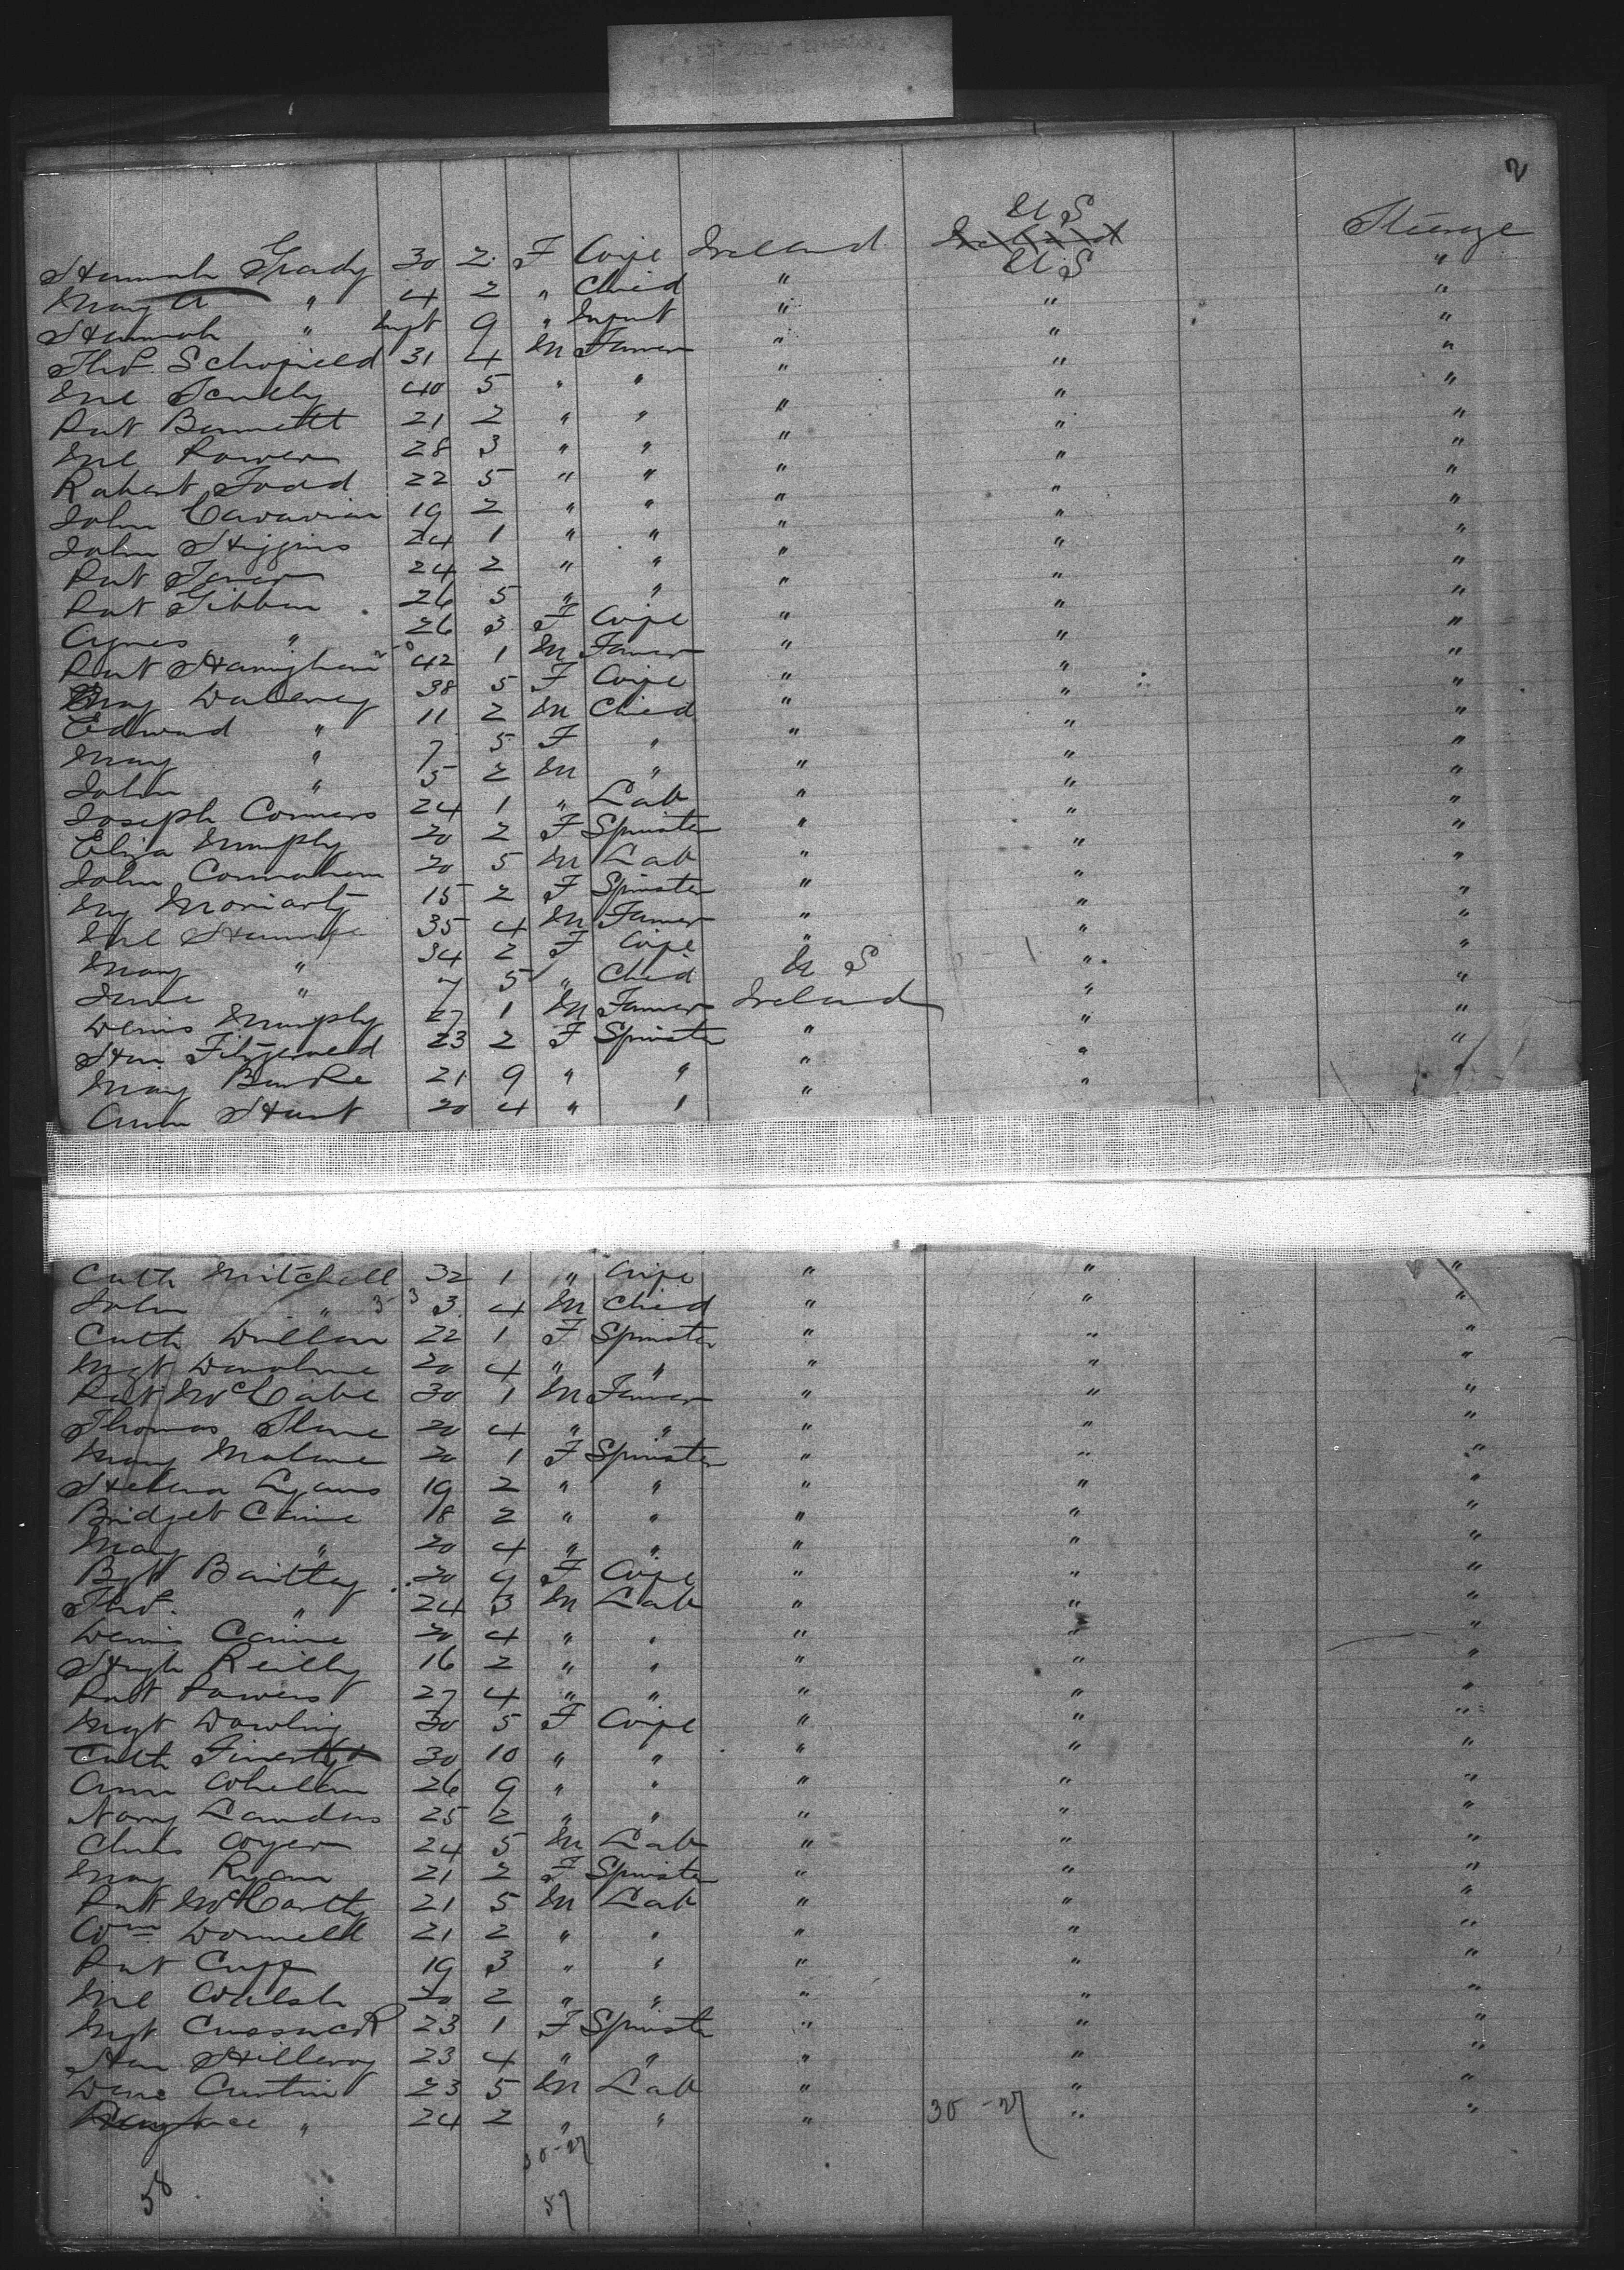 2
U S
Hannah Grady 30 2 F Wife Ireland U S Steerage
Mary A " 4 2 " Child " "
Hannah " Inft 9 " Infant " " "
Thos. Schofield 31 4 M Farmer " " "
Ml Scully 40 5 " " " " "
Pat Bennett 21 2 " " " " "
Ml Power 28 3 " " " " "
Robert Todd 22 5 " " " " "
John 19 2 " " " " "
John Higgins 24 1 " " " " "
Pat 24 2 " " " " "
Pat Gibbon 26 5 " " " " "
Agnes " 26 3 F Wife " " "
Pat 42 1 M Farmer " " "
Mary Dulaney 38 5 F Wife " " "
Edward " 11 2 M Child " " "
Mary " 7 5 F " " " "
John " 5 2 M " " " "
Joseph Connors 24 1 " Lab " " "
Eliza Murphy 20 2 F Spinster " " "
John 20 5 M Lab " " "
My Moriarty 15 2 F Spinster " " "
Ml 35 4 M Farmer " " "
Mary " 34 2 F Wife " " "
" 7 5 " Child U S " "
Denis Murphy 27 1 M Farmer Ireland " "
Han Fitzgerald 23 2 F Spinster " " "
Mary Burke 21 9 " " " " "
Ann Hunt 20 4 " " " "
Cath Mitchell 32 1 " Wife " " "
John " 3 4 M Child " " "
Cath Dillon 22 1 F Spinster " " "
Mgt 20 4 " " " " "
Pat McCabe 30 1 M Farmer " " "
Thomas 20 4 " " " " "
Mary Malone 20 1 F Spinster " " "
Helena Lyons 19 2 " " " " "
Bridget 18 2 " " " " "
Mary " 20 4 " " " " "
Bgt Bartley 20 9 F Wife " " "
Thos. " 24 3 M Lab " " "
Denis 20 4 " " " " "
Hugh Reilly 16 2 " " " " "
Pat Powers 27 4 " " " " "
Mgt Dowling 30 5 F Wife " " "
Cath 30 10 " " " " "
Ann Whelan 26 9 " " " " "
Nory Landers 25 2 " " " " "
Chas 24 5 M Lab " " "
Mary Ryan 21 2 F Spinster " " "
Pat McCarthy 21 5 M Lab " " "
Wm Donnell 21 2 " " " " "
Pat Cuff 19 3 " " " " "
Ml Walsh 20 2 " " " " "
Mgt Cussack 23 1 F Spinster " " "
Han Hilleroy 23 4 " " " " "
Curtin 23 5 M Lab " " "
" 24 2 " " " 30-27 " "
30-27
58 57